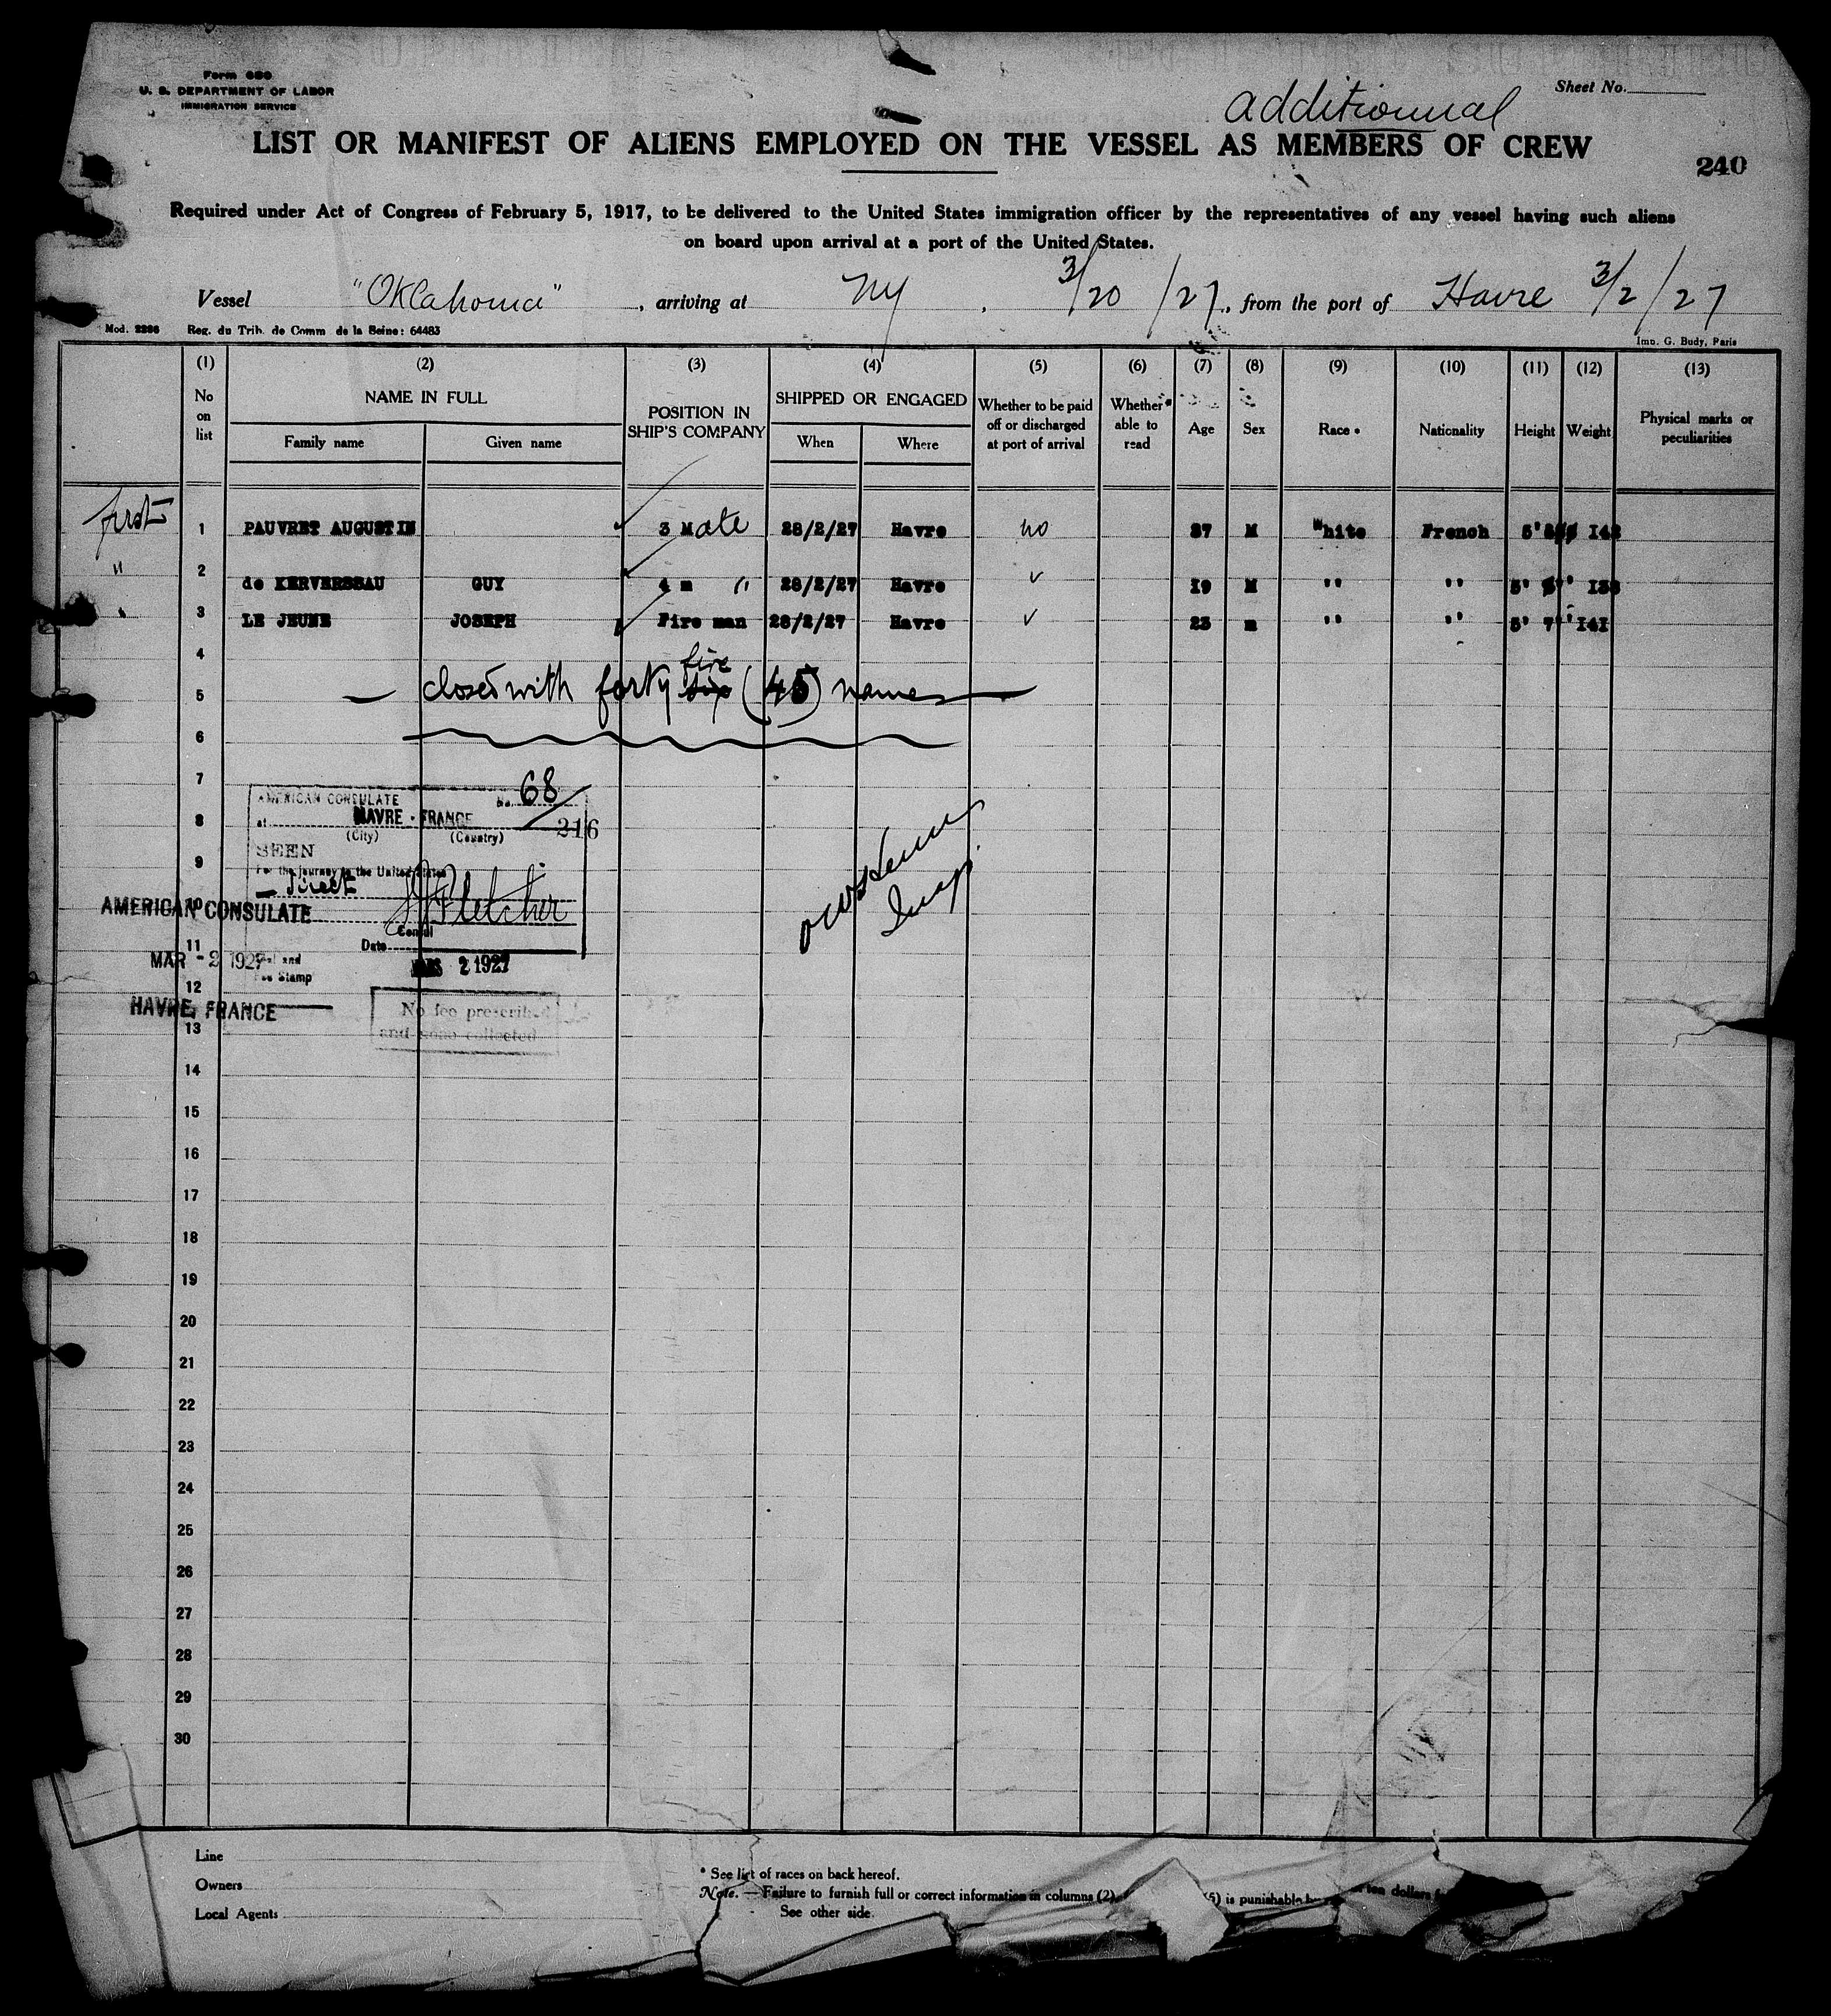 Form 680
U. S. DEPARTMENT OF LABOR
IMMIGRATION SERVICE
Sheet No.
additionnal
LIST OR MANIFEST OF ALIENS EMPLOYED ON THE VESSEL AS MEMBERS OF CREW
240
Required under Act of Congress of February 5, 1917, to be delivered to the United States immigration officer by the representatives of any vessel having such aliens
on board upon arrival at a port of the United States.
Vessel "Oklahoma", arriving at NY, 3/20/27, from the port of Havre 3/2/27
Mod. 2286 Reg. du Trib. de Comm de la Seine: 64483
Imp. G. Budy, Paris
(1) (2) (3) (4) (5) (6) (7) (8) (9) (10) (11) (12) (13)
No on list
NAME IN FULL
Family name Given name
POSITION IN SHIP'S COMPANY
SHIPPED OR ENGAGED
When Where
Whether to be paid off or discharged at port of arrival
Whether able to read
Age Sex Race Nationality Height Weight
Physical marks or peculiarities
first 1 PAUVRET AUGUSTIN 3 Mate 28/2/27 Havre no M White French
" 2 de KERVERSEAU GUY 4 m " 28/2/27 Havre 19 M " "
3 LE JEUNE JOSEPH Fire man 28/2/27 Havre 23 m " " 5' 7" 141
4
5 closed with forty five (45) names
6
7
8
9
10
11
12
13
14
15
16
17
18
19
20
21
22
23
24
25
26
27
28
29
30
AMERICAN CONSULATE No. 68
at HAVRE - FRANCE 216
(City) (Country)
SEEN
For the journey to the United States
Direct
Fletcher
Consul
Date
MARS 2 1927
Seal and
Fee Stamp
AMERICAN CONSULATE
MAR - 2 1927
HAVRE, FRANCE
No fee prescribed
and none collected
Insp.
Line
Owners
Local Agents
* See list of races on back hereof.
Note. — Failure to furnish full or correct information in columns (2), (5) is punishable by ten dollars
See other side.